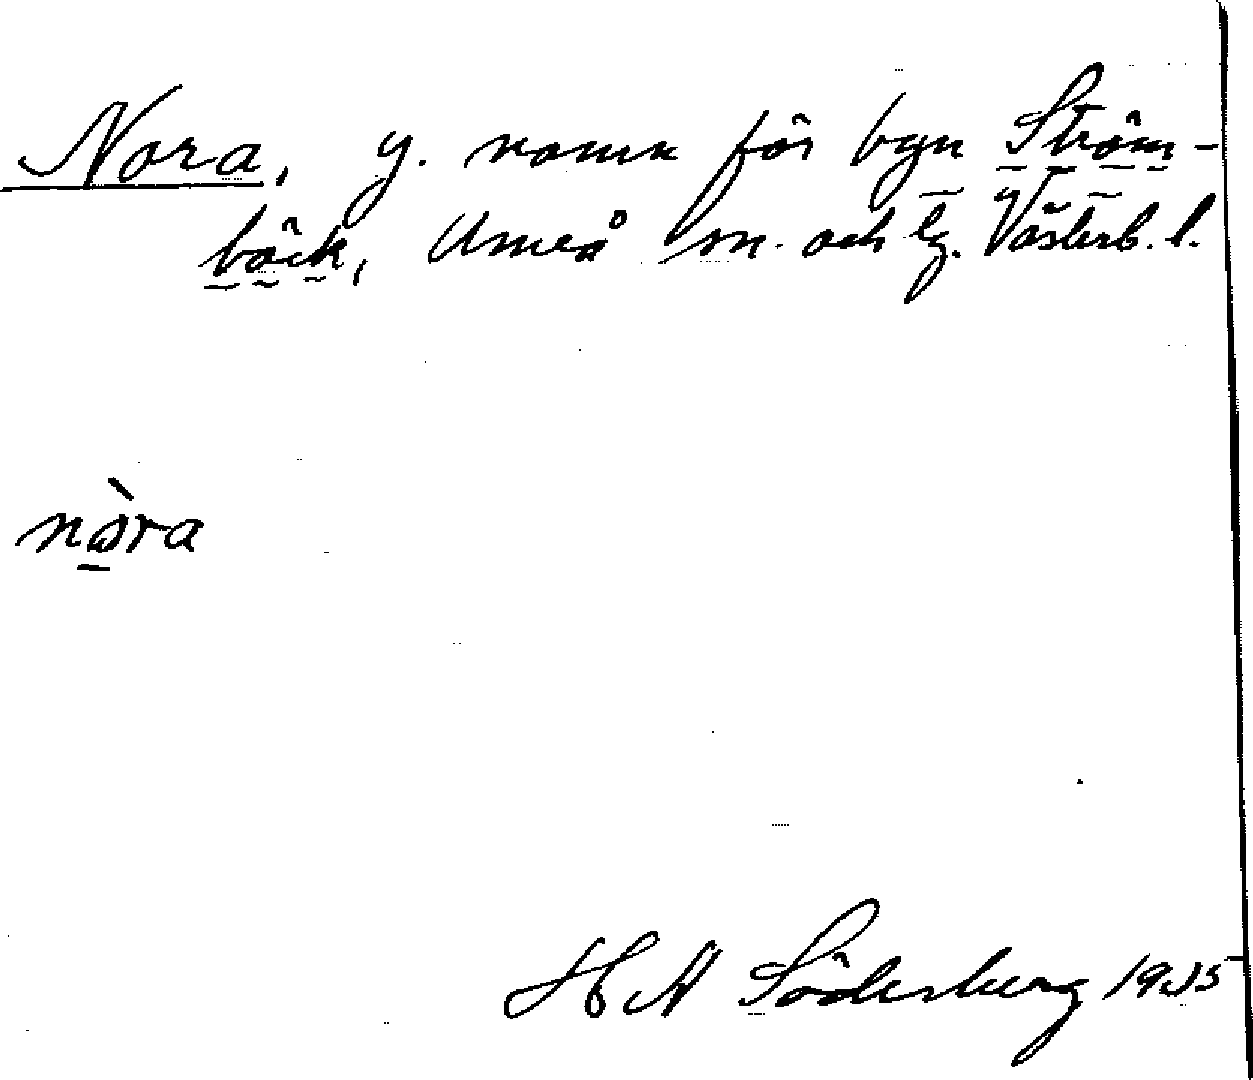 Nora, y. namn för byn Ström-
bäck, Umeå sn. och lg. Västerb. l.
nòra
H A Söderberg